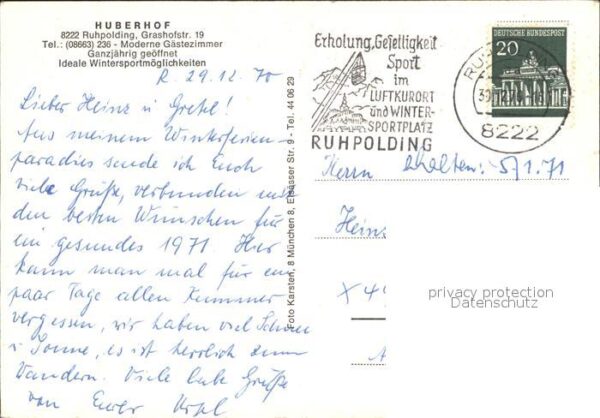 HUBERHOF
8222 Ruhpolding, Grashofstr. 19
Tel.: (08663) 236 - Moderne Gästezimmer
Ganzjährig geöffnet
Ideale Wintersportmöglichkeiten
R 29.12.70
Lieber Heinz u Gretel!
Aus meinem Winterferien-
paradies sende ich Euch
viele Grüße, verbunden mit
den besten Wünschen für
ein gesundes 1971. Hier
kann man mal für ein
paar Tage allen Kummer
vergessen, wir haben viel Schnee
u Sonne, es ist herrlich zum
Wandern. Viele liebe Grüße
von Eurer
Foto Karsten, 8 München 8, Elsässer Str. 9 - Tel. 44 06 29
Erholung, Geselligkeit
Sport
im
LUFTKURORT
und WINTER-
SPORTPLATZ
RUHPOLDING
DEUTSCHE BUNDESPOST
20
8222
Herrn
erhalten: 5/1.71
Heinz
privacy protection
Datenschutz